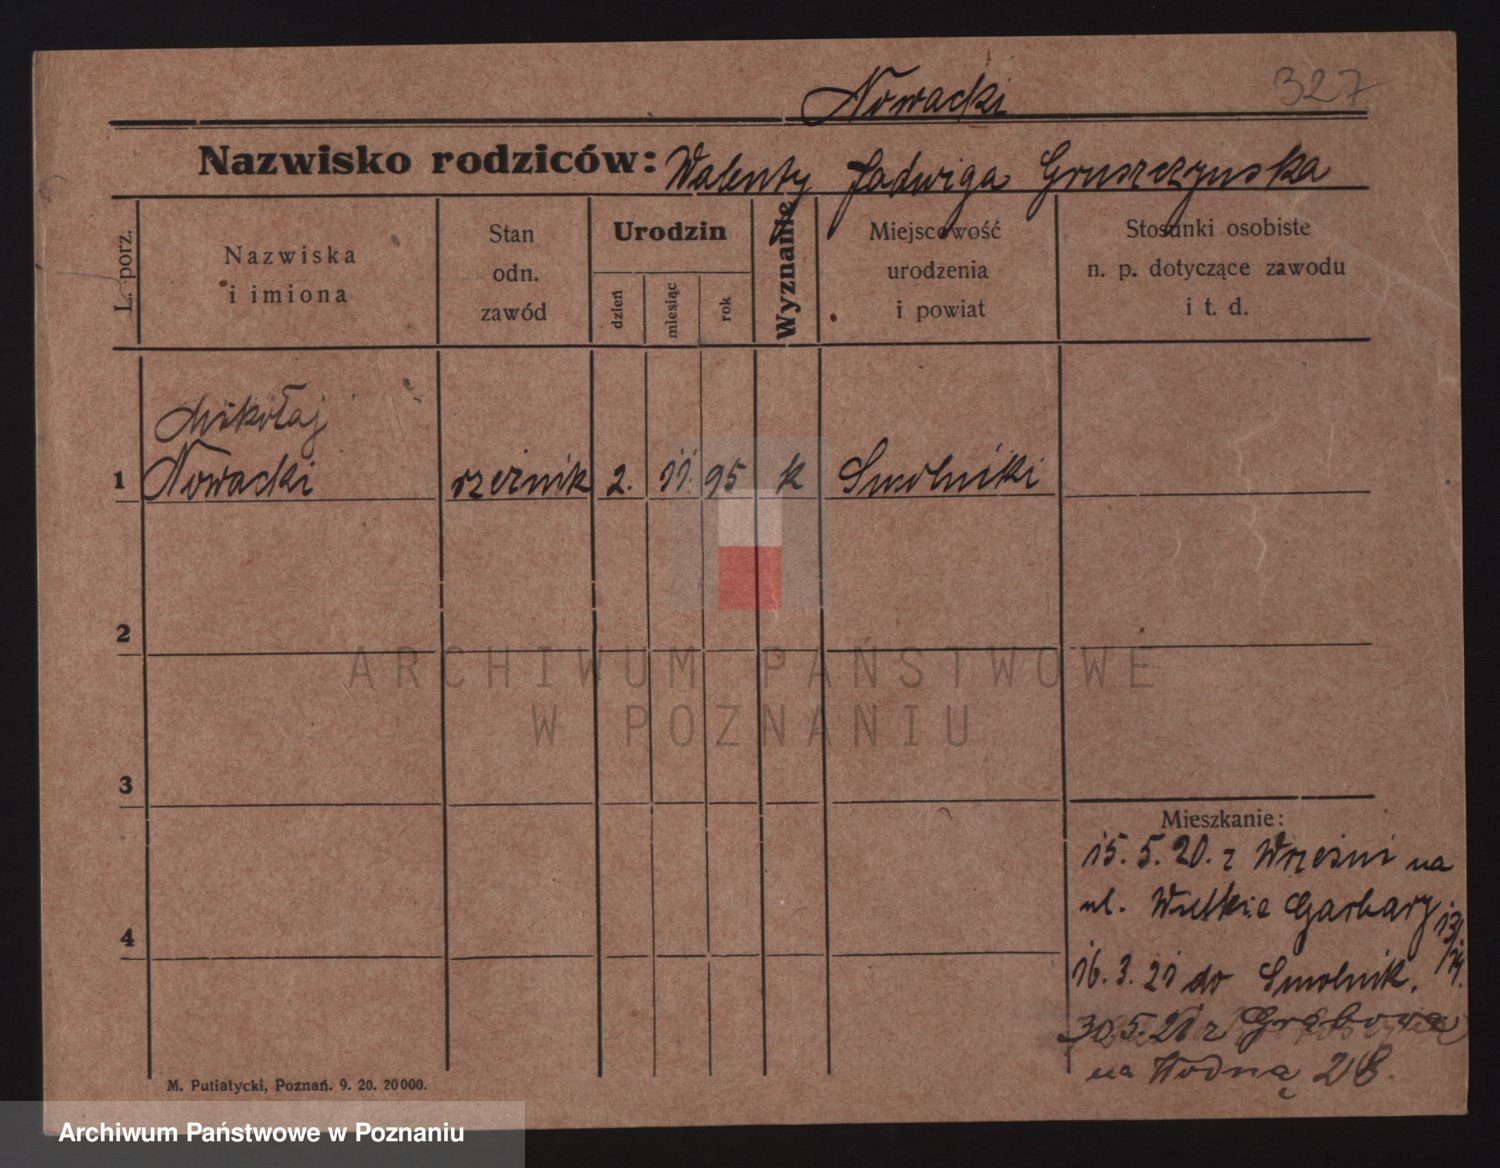 Nowacki 327
Nazwisko rodziców: Walenty Jadwiga Gruszczynska
L. porz.
Nazwiska
i imiona
Stan
odn.
zawód
Urodzin
dzień
miesiąc
rok
Wyznanie
Miejscowość
urodzenia
i powiat
Stosunki osobiste
n. p. dotyczące zawodu
i t. d.
Mikołaj
1 Nowacki rzeźnik 2. 11. 95 k Smolniki
2
ARCHIWUM PAŃSTWOWE
W POZNANIU
3
Mieszkanie:
15. 5. 20. z Wrześni na
ul. Wielkie Garbary 13/
14.
4
16. 3. 21 do Smolnik.
30. 5. 21 z Grabowa
na Wodną 28.
M. Putiatycki, Poznań. 9. 20. 20000.
Archiwum Państwowe w Poznaniu